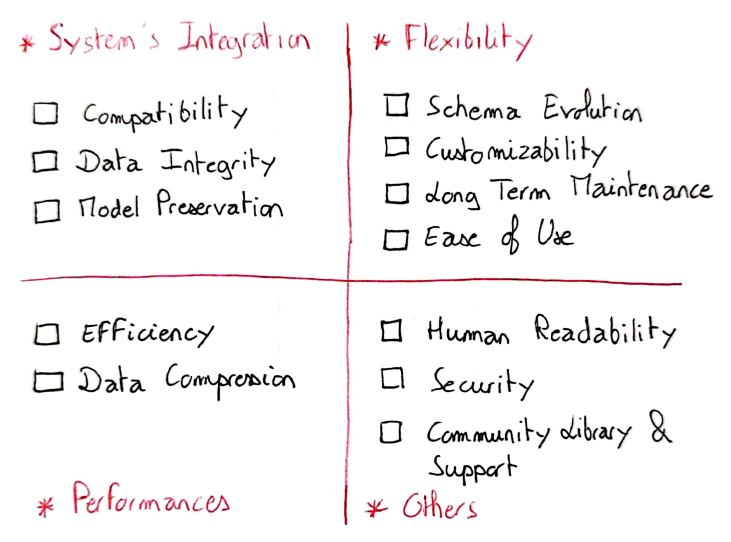 * System's Integration
☐ Compatibility
☐ Data Integrity
☐ Model Preservation
* Flexibility
☐ Schema Evolution
☐ Customizability
☐ Long Term Maintenance
☐ Ease of Use
☐ Efficiency
☐ Data Compression
* Performances
☐ Human Readability
☐ Security
☐ Community Library &
Support
* Others